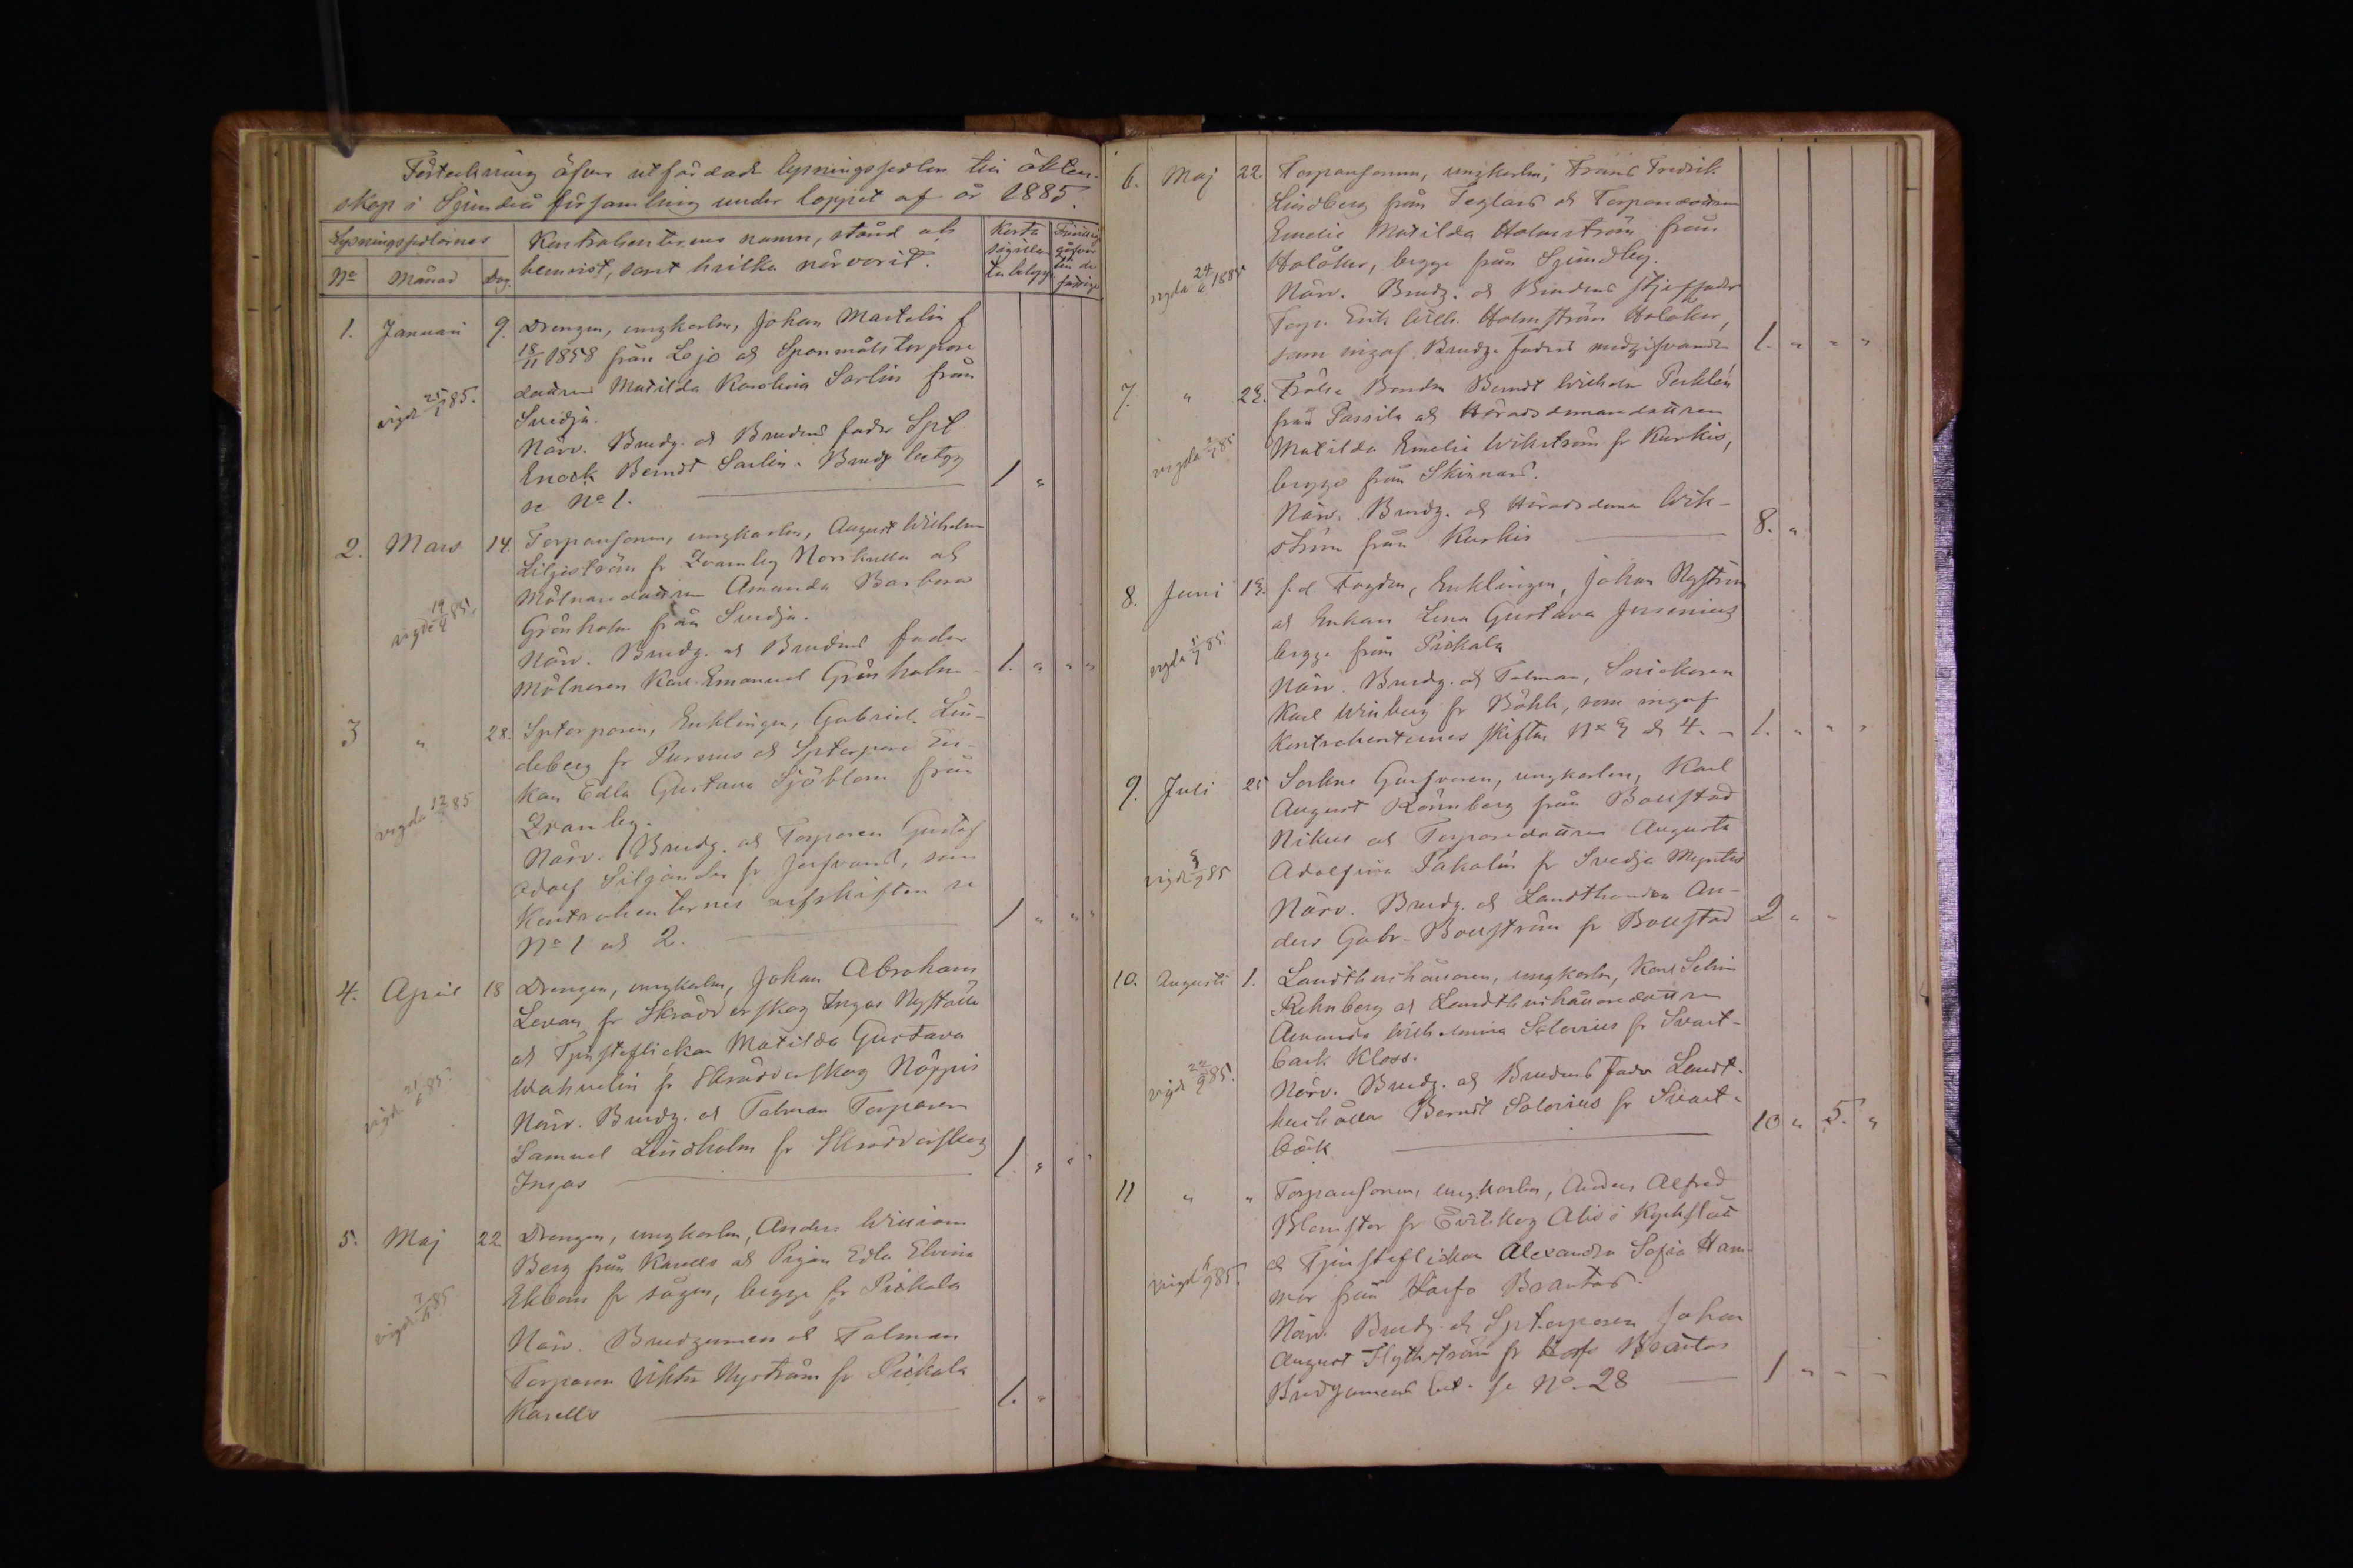 Förteckning öfver utfärdade lysningssedlar till äkten-
skap i Sjundeå församling under loppet af år 1885.
Lysningssedlarnes
No Månad Dag.
Kontrahenternas namn, stånd och
hemvist, samt hvilka närvarit.
Korta
till de
fattige
1. Januari 9. Drengen, ungkarln, Johan Martelin f
18/11 1858 från Lojo och Spanmålstorpare
dottren Matilda Karolina Sarlin från
vigd 25/1 85.
Svidja.
Närv. Brudg. och Brudens fader Spt
Enock Berndt Sarlin. Brudg betyg
se No 1. 1 "
2. Mars 14 Torparsonen, ungkarln, August Wilhelm
Liljeström fr Kvarnby Norrkulla och
Mölnaredottren Amanda Barbara
vigde 19/4 85.
Grönholm från Svidja.
Närv. Brudg. och Brudens fader
Mölnaren Karl Emanuel Grönholm - 1. " " "
3 " 28. Sptorparen, Enklingen, Gabriel Lin-
deberg fr Pursus och Sptorpare En-
kan Edla Gustava Sjöblom från
vigda 12 85
Kvarnby.
Närv. Brudg. och Torparen Gustaf
Adolf Siljander fr Josvans, som
Kontrahenternes arfskiften se
No 1 och 2. 1 " " "
4. April 18 Drengen, ungkarln, Johan Abraham
Levan fr Skräddarskog Ingas Nyställe
och Tjensteflickan Matilda Gustava
Wahvelin fr Skräddarskog Näppis
vigd 21/6 85.
Närv. Brudg. och Talman Torparen
Samuel Lindholm fr Skräddarskog
Ingas 1. " " "
5. Maj 22 Drengen, ungkarln, Anders William
Berg från Karells och Pigan Edla Elvina
Ekbom fr sågen, begge fr Pickala
vigd 7/6 85
Närv. Brudgummen och Talman
Torparen Viktor Nyström fr Pickala
Karells 1. "
6. Maj 22 Torparsonen, ungkarln, Frans Fredrik
Lindberg från Teglars och Torparedottren
Emelie Matilda Holmström från
Holåker, begge från Sjundby.
vigda 24/6 1885
Närv. Brudg. och Brudens styffader
Torp. Erik Wilh. Holmström Holåker,
som ingaf Brudgs faders medgifvande 1. " " "
7. " 29. Frälse Bonden Berndt Wilhelm Perklén
från Passila och Häradsdomaredottren
Matilda Emelie Wikström fr Kurkis,
vigda 2/7 85
begge från Skinnars.
Närv. Brudg. och Häradsdomar Wik-
ström från Kurkis 8. "
8. Juni 19. f.d Fogden, Enklingen, Johan Nyström
och Enkan Lena Gustava Jusenius
begge från Pickala
vigda 5/7 85.
Närv. Brudg. och Talman, Snickaren
Karl Winberg fr Böhle, som ingaf
Kontrahenternes skiften No 3 och 4. - 1. " " "
9. Juli 25 Sockne Garfvaren, ungkarln, Karl
August Rönnberg från Bollstad
Nikus och Torparedottren Augusta
Adolfina Pakalén fr Svidja Myntus
vigd 85
Närv. Brudg. och Landtbonden An-
ders Gabr. Bollström fr Bollstad 2 " "
10. Augusti 1. Landthushållaren, ungkarln, Karl Selim
Rehnberg och Landthushållaredottren
Amanda Wilhelmina Salovius fr Svart-
back Kloss.
vigd 22/9 85.
Närv. Brudg. och Brudens fader Landt-
hushållar Berndt Salovius fr Svart-
bäck 10 " 5. "
11 " " Torparsonen, ungkarln, Anders Alfred
Blomster fr Evitskog Abis i Kyrkslätt
och Tjensteflickan Alexandra Sofia Ham-
mar från Harfs Brantas.
vigd 85.
Närv. Brudg. och Sptorparen Johan
August Flythström fr Harfs Bräntas
Brudgummens bet. se No. 28 1 " - -